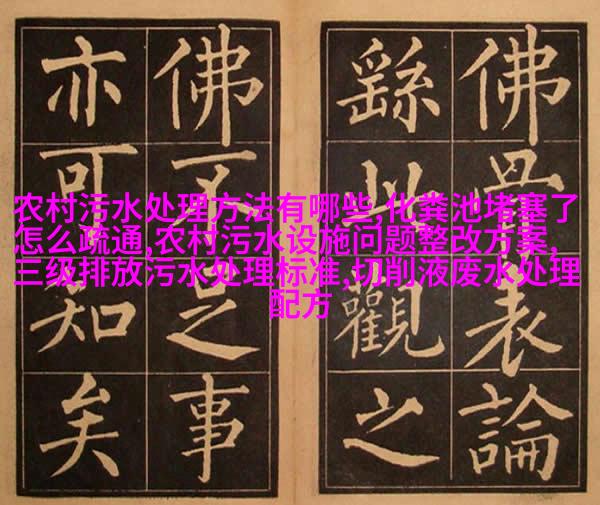 佛骨表論
繇此觀之
佛不足事
亦可知矣
农村污水处理方法有哪些,化粪池堵塞了
怎么疏通,农村污水设施问题整改方案,
三级排放污水处理标准,切削液废水处理
配方